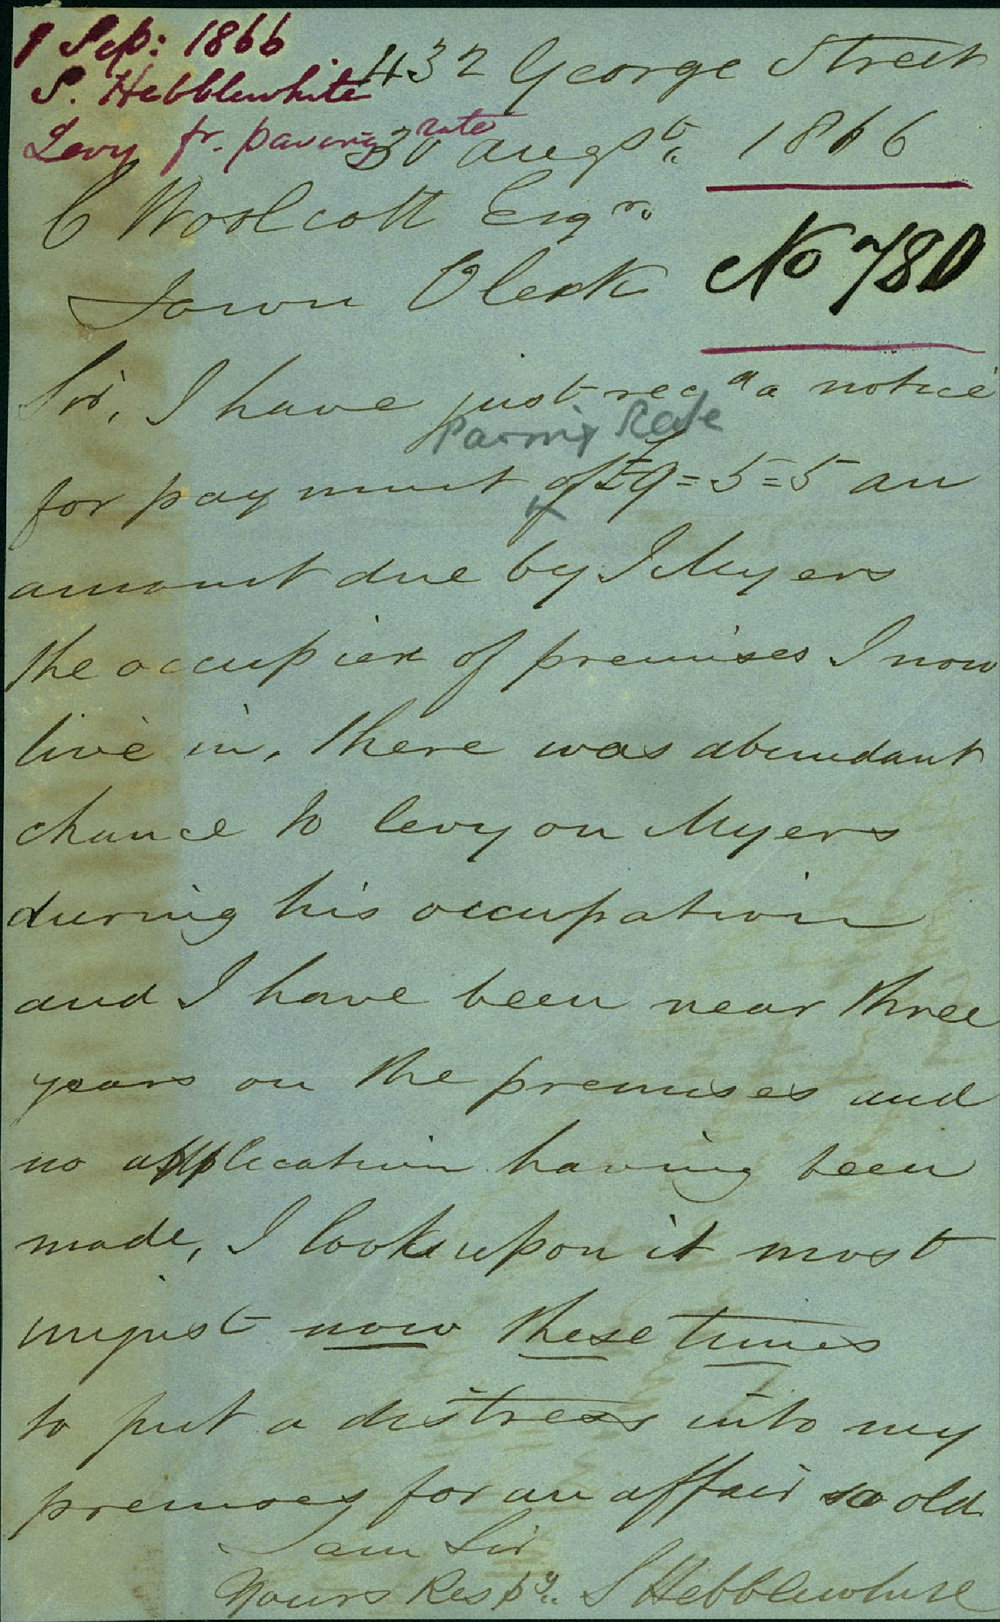 1 Sep: 1866
S. Hebblewhite
Levy fr. paving rate
432 George Street
30 Augst. 1866
C Woolcott Esqr.
Town Clerk
No 780
Sir, I have just recd a notice
Paving Rate
for payment of £9=5=5 an
amount due by I Myers
the occupier of premises I now
live in, there was abundant
chance to levy on Myers
during his occupation
and I have been near three
years on the premises and
no application having been
made, I look upon it most
unjust now these times
to put a distress into my
premises for an affair so old
I am Sir
Yours Respy. S Hebblewhite